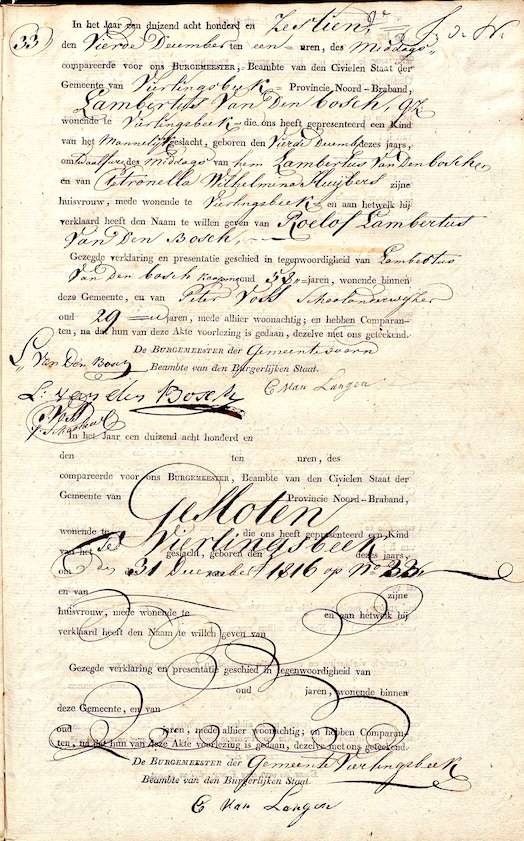 33
In het Jaar een duizend acht honderd en Zestien
den Vierde December ten een uren, des Middags
compareerde voor ons BURGEMEESTER, Beambte van den Civielen Staat der
Gemeente van Vierlingsbeek Provincie Noord-Braband,
Lambertus Van Den bosch,
wonende te Vierlingsbeek die ons heeft gepresenteerd een Kind
van het Mannelijk geslacht, geboren den Vierde Decemb. dezes jaars,
om twaalf ure des Middags van hem Lambertus Van den bosch en
en van Petronella Wilhelmina Huijbers zijne
huisvrouw, mede wonende te Vierlingsbeek en aan hetwelk hij
verklaard heeft den Naam te willen geven van Roelof Lambertus
Van Den Bosch,
Gezegde verklaring en presentatie geschied in tegenwoordigheid van Lambertus
Van den bosch oud 53 jaren, wonende binnen
deze Gemeente, en van Peter Vost Schoolonderwijzer
oud 29 jaren, mede alhier woonachtig; en hebben Comparan-
ten, na dat hun van deze Akte voorlezing is gedaan, dezelve met ons geteekend.
De BURGEMEESTER der Gemeente voorn
L. Van Den Bosch Beambte van den Burgerlijken Staat.
L: van den Bosch C Van Langen
In het Jaar een duizend acht honderd en
den ten uren, des
compareerde voor ons BURGEMEESTER, Beambte van den Civielen Staat der
Gemeente van Provincie Noord-Braband,
Gesloten
wonende te die ons heeft gepresenteerd een Kind
te Vierlingsbeek
van het geslacht, geboren den dezes jaars,
om den 31 December 1816 op No 33
en van zijne
huisvrouw, mede wonende te en aan hetwelk hij
verklaard heeft den Naam te willen geven van
Gezegde verklaring en presentatie geschied in tegenwoordigheid van
oud jaren, wonende binnen
deze Gemeente, en van
oud jaren, mede alhier woonachtig; en hebben Comparan-
ten, na dat hun van deze Akte voorlezing is gedaan, dezelve met ons geteekend.
De BURGEMEESTER der Gemeente Vierlingsbeek
Beambte van den Burgerlijken Staat.
C Van Langen